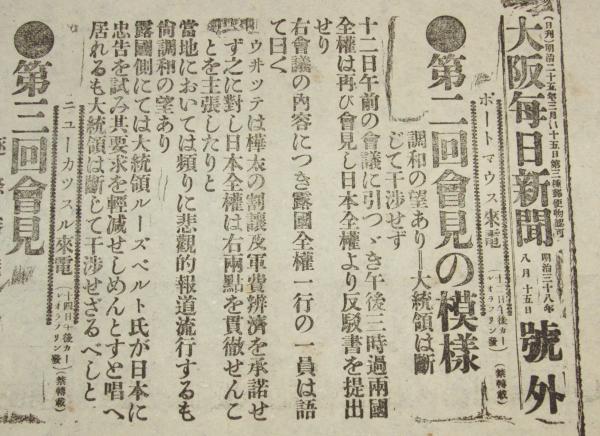 大阪毎日新聞 號外
明治三十八年
八月十五日
●第二回會見の模様
ポートマウス來電
(禁轉載)
調和の望あり=大統領は斷
じて干渉せず
十二日午前の會議に引つゞき午後三時過兩國
全權は再び會見し日本全權より反駁書を提出
せり
右會議の内容につき露國全權一行の一員は語
て曰く
ウ井ツテは樺太の割讓及軍費辨濟を承諾せ
ず之に對し日本全權は右兩點を貫徹せんこ
とを主張したりと
當地においては頻りに悲觀的報道流行するも
尚調和の望あり
露國側にては大統領ルーズベルト氏が日本に
忠告を試み其要求を輕減せしめんとすと唱へ
居れるも大統領は斷じて干渉せざるべしと
ニューカツスル來電
(十四日午後カーデイオラフリン發)(禁轉載)
●第三回會見